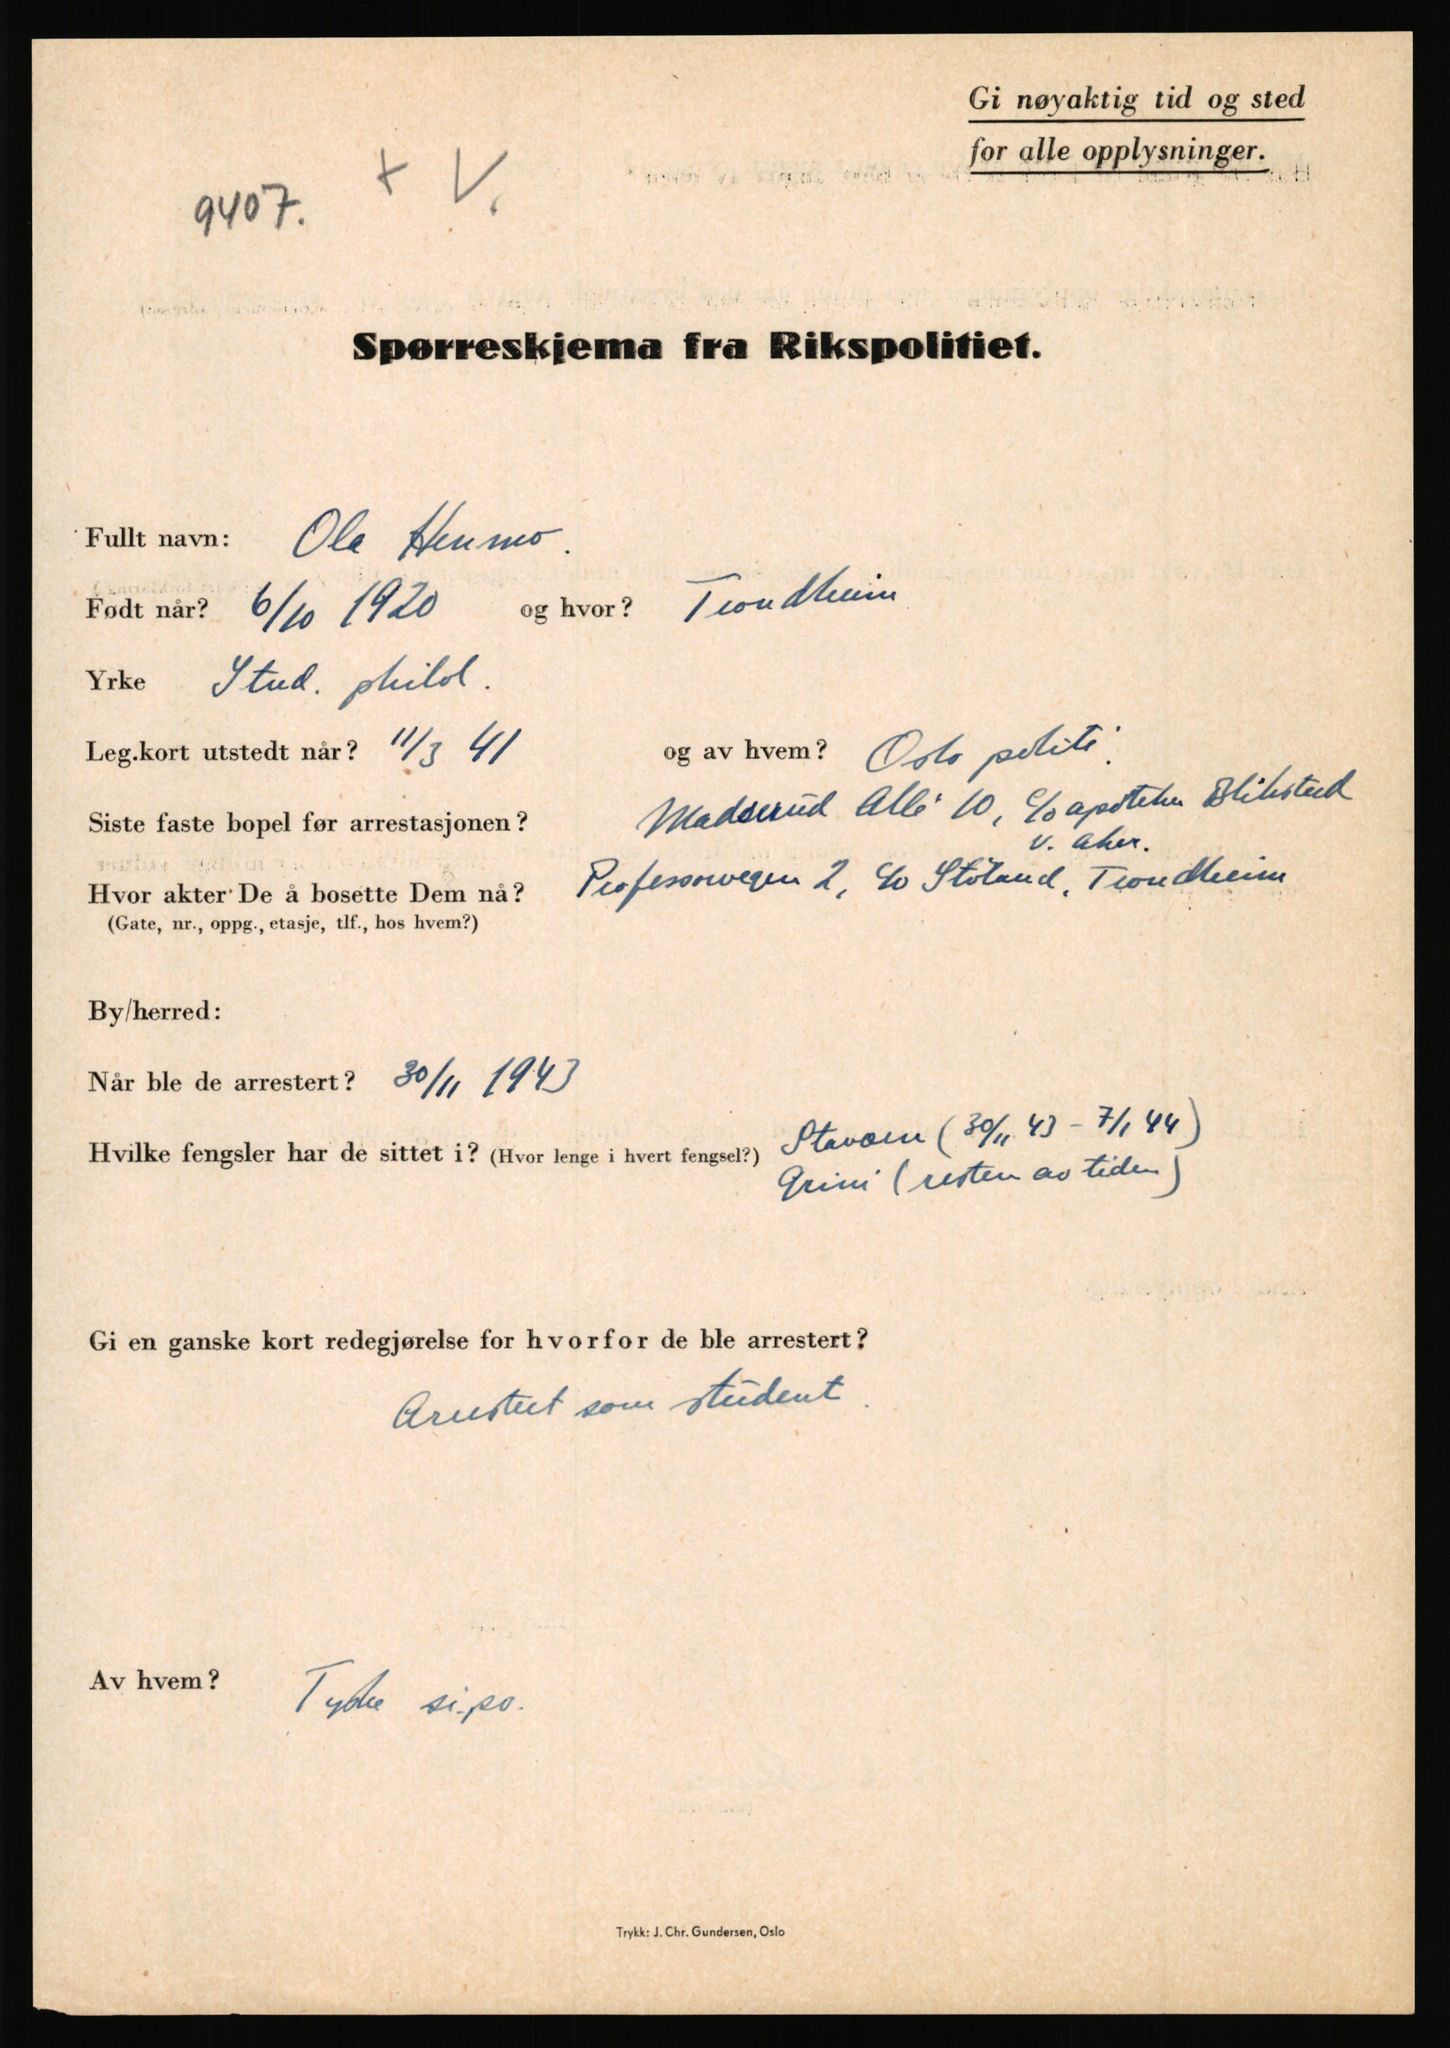 Gi nøyaktig tid og sted
for alle opplysninger.
9407. + V.
Spørreskjema fra Rikspolitiet.
Fullt navn: Ola Henmo.
Født når? 6/10 1920 og hvor? Trondheim
Yrke Stud. philol.
Leg.kort utstedt når? 11/3 41 og av hvem? Oslo politi.
Siste faste bopel før arrestasjonen? Madserud Allé 10, c/o apoteker Blikstad
v. Aker.
Hvor akter De å bosette Dem nå? Professorvegen 2, c/o Støland, Trondheim
(Gate, nr., oppg., etasje, tlf., hos hvem?)
By/herred:
Når ble de arrestert? 30/11 1943
Hvilke fengsler har de sittet i? (Hvor lenge i hvert fengsel?) Stavern (30/11 43 - 7/1 44)
Grini (resten av tiden)
Gi en ganske kort redegjørelse for hvorfor de ble arrestert?
Arrestert som student.
Av hvem? Tyske si.po.
Trykk: J. Chr. Gundersen, Oslo